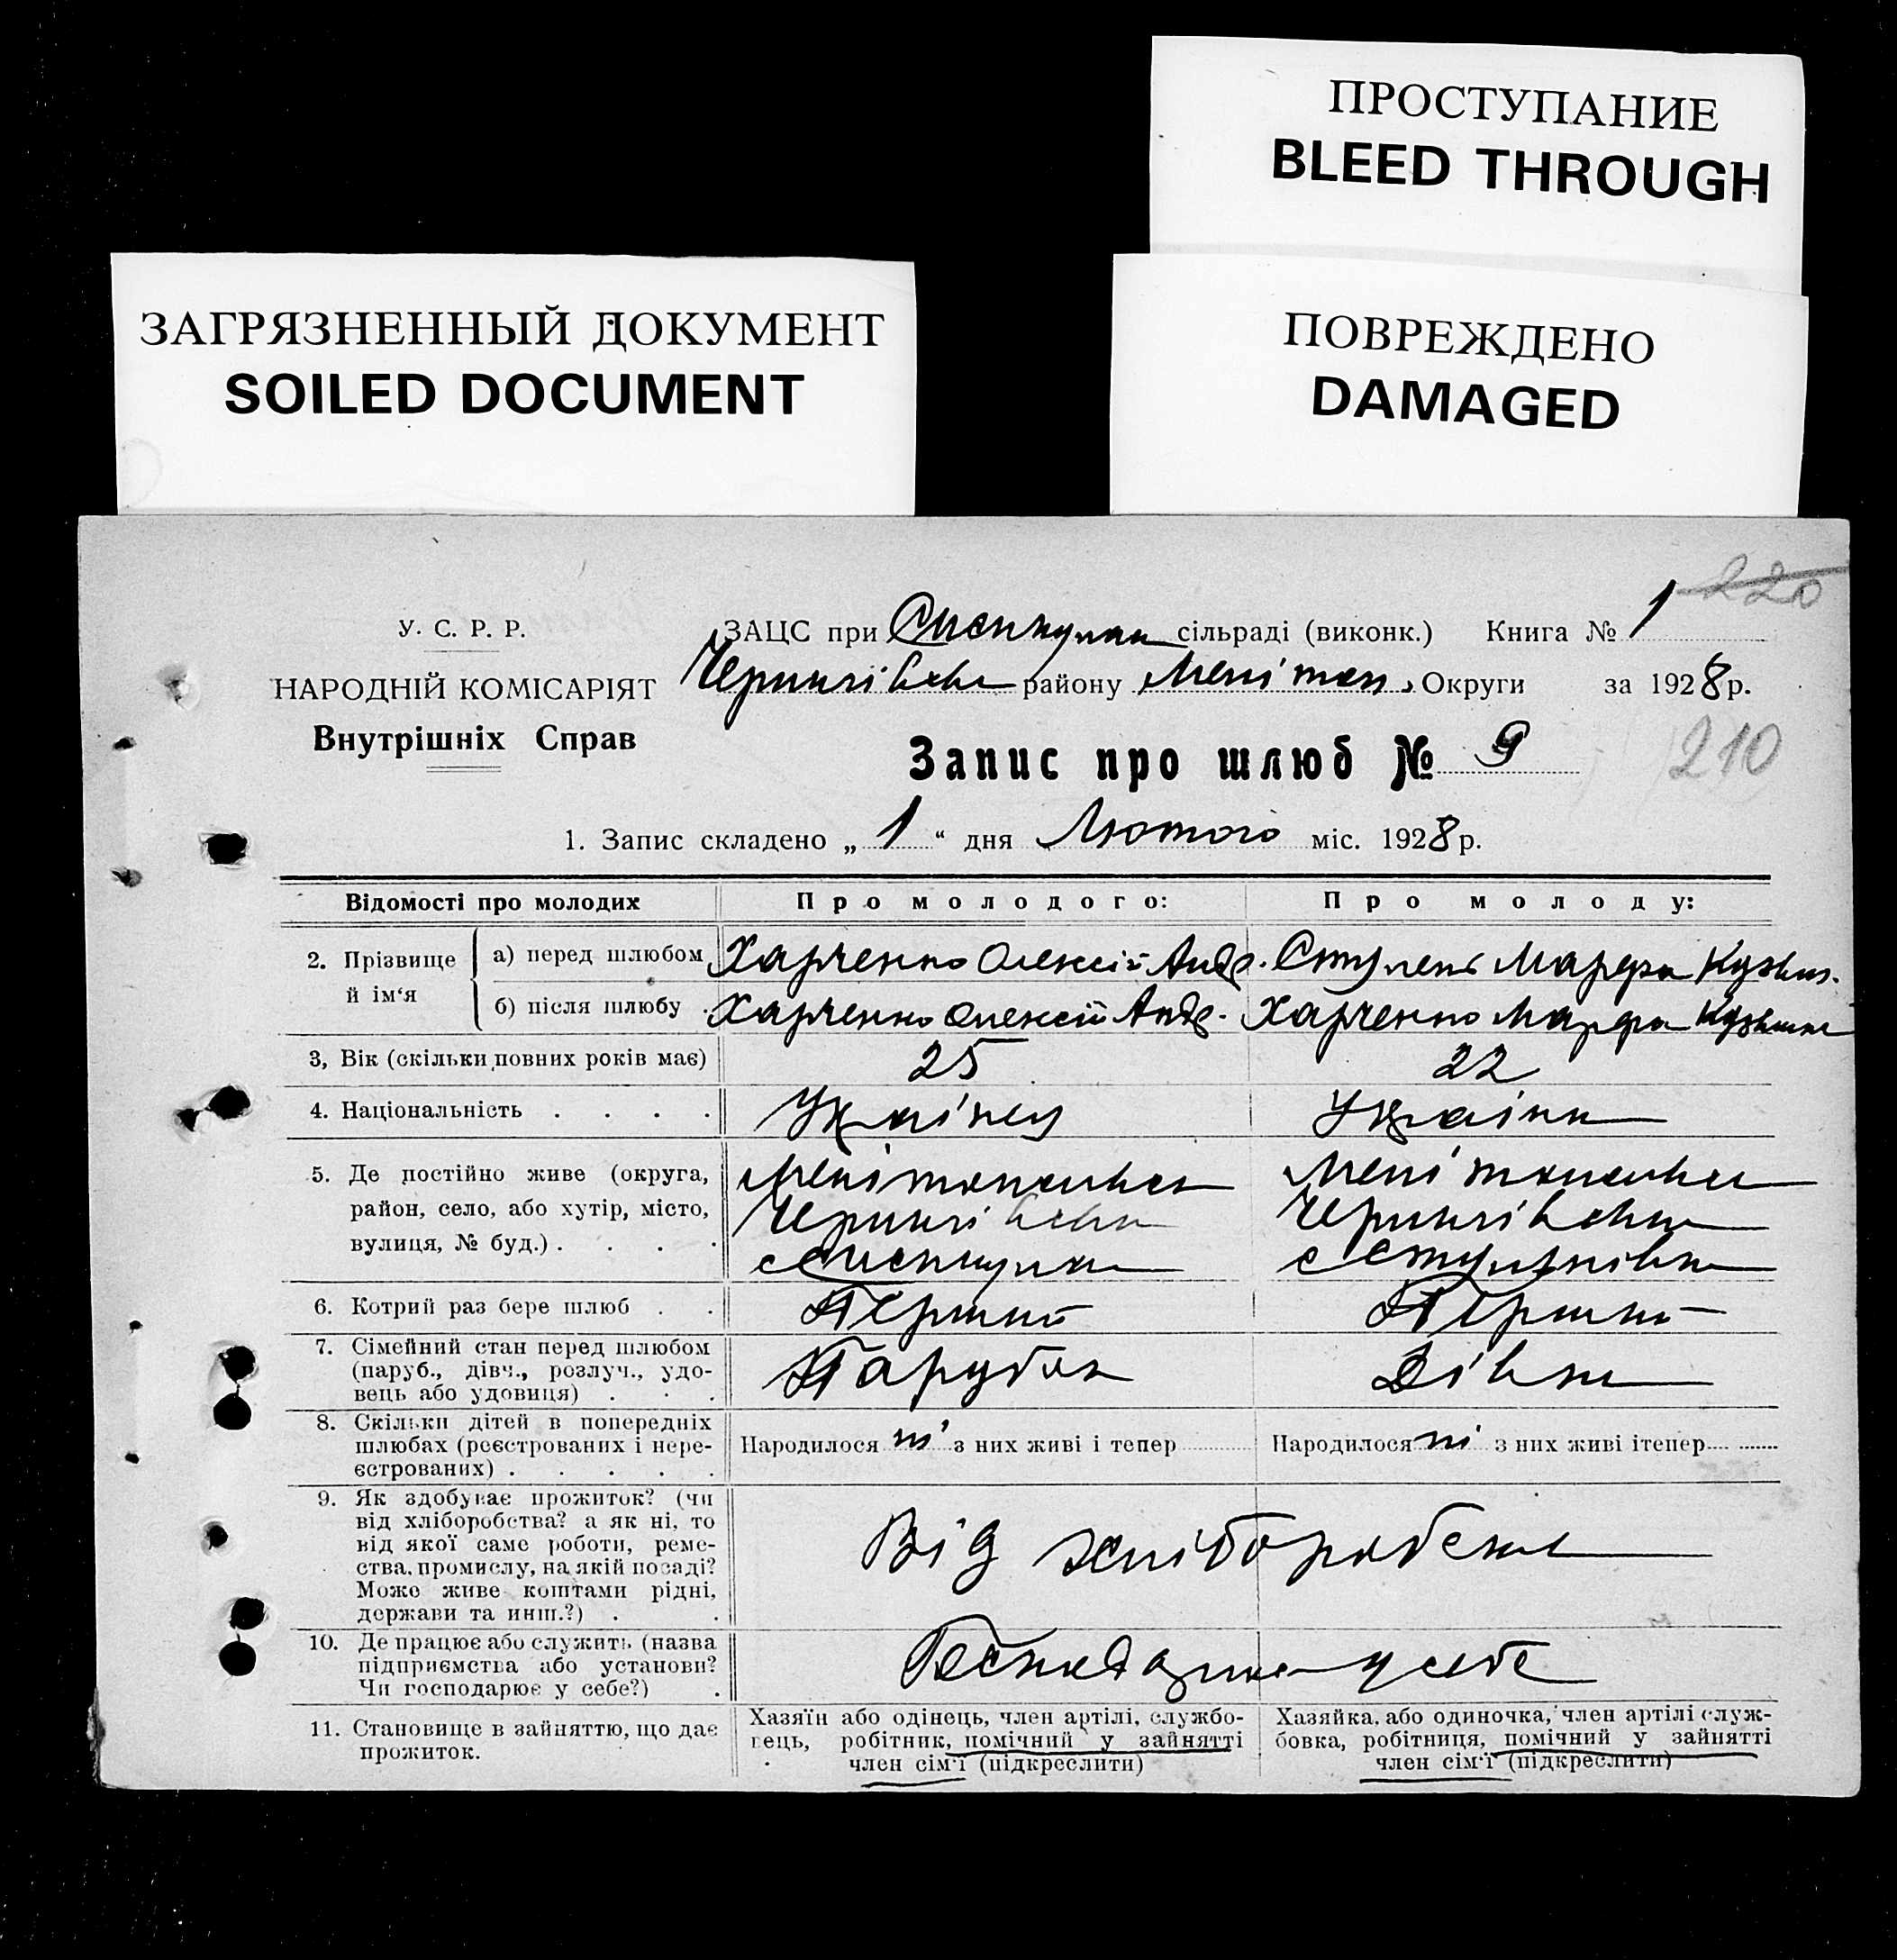 ПРОСТУПАНИЕ
BLEED THROUGH
ЗАГРЯЗНЕННЫЙ ДОКУМЕНТ
SOILED DOCUMENT
ПОВРЕЖДЕНО
DAMAGED
220
У. С. Р. Р.
НАРОДНІЙ КОМІСАРІЯТ
Внутрішніх Справ
ЗАЦС при сільраді (виконк.) Книга № 1
Чернигівськ району Мелітоп. Округи за 1928 р.
Запис про шлюб № 9
210
1. Запис складено „ 1 “ дня Лютого міс. 1928 р.
Відомості про молодих
Про молодого:
Про молоду:
2. Прізвище й ім‘я
а) перед шлюбом
Харченко Олексій Андр.
Ступень Марфа Кузьм.
б) після шлюбу
Харченко Олексій Андр.
Харченко Марфа Кузьмин
3, Вік (скільки повних років має)
25
22
4. Національність . . . .
Українец
Українк
5. Де постійно живе (округа,
район, село, або хутір, місто,
вулиця, № буд.) . . . .
Мелітопольськ
Чернигівськ
Мелітопольськ
Чернигівськ
6. Котрий раз бере шлюб . .
Перший
Перший
7. Сімейний стан перед шлюбом
(паруб., дівч., розлуч., удо-
вець або удовиця) . . .
Парубок
Дівка
8. Скільки дітей в попередніх
шлюбах (реєстрованих і нере-
єстрованих) . . . . .
Народилося ні з них живі і тепер
Народилося ні з них живі ітепер
9. Як здобуває прожиток? (чи
від хліборобства? а як ні, то
від якої саме роботи, реме-
ства, промислу, на якій посаді?
Може живе коштами рідні,
держави та инш.?) . .
Від хліборобства
10. Де працює або служить (назва
підприємства або установи?
Чи господарює у себе?) .
у себе
11. Становище в зайняттю, що дає
прожиток.
Хазяїн або одінець, член артілі, службо-
вець, робітник, помічний у зайнятті
член сім‘ї (підкреслити)
Хазяйка, або одиночка, член артілі служ-
бовка, робітниця, помічний у зайнятті
член сім‘ї (підкреслити)